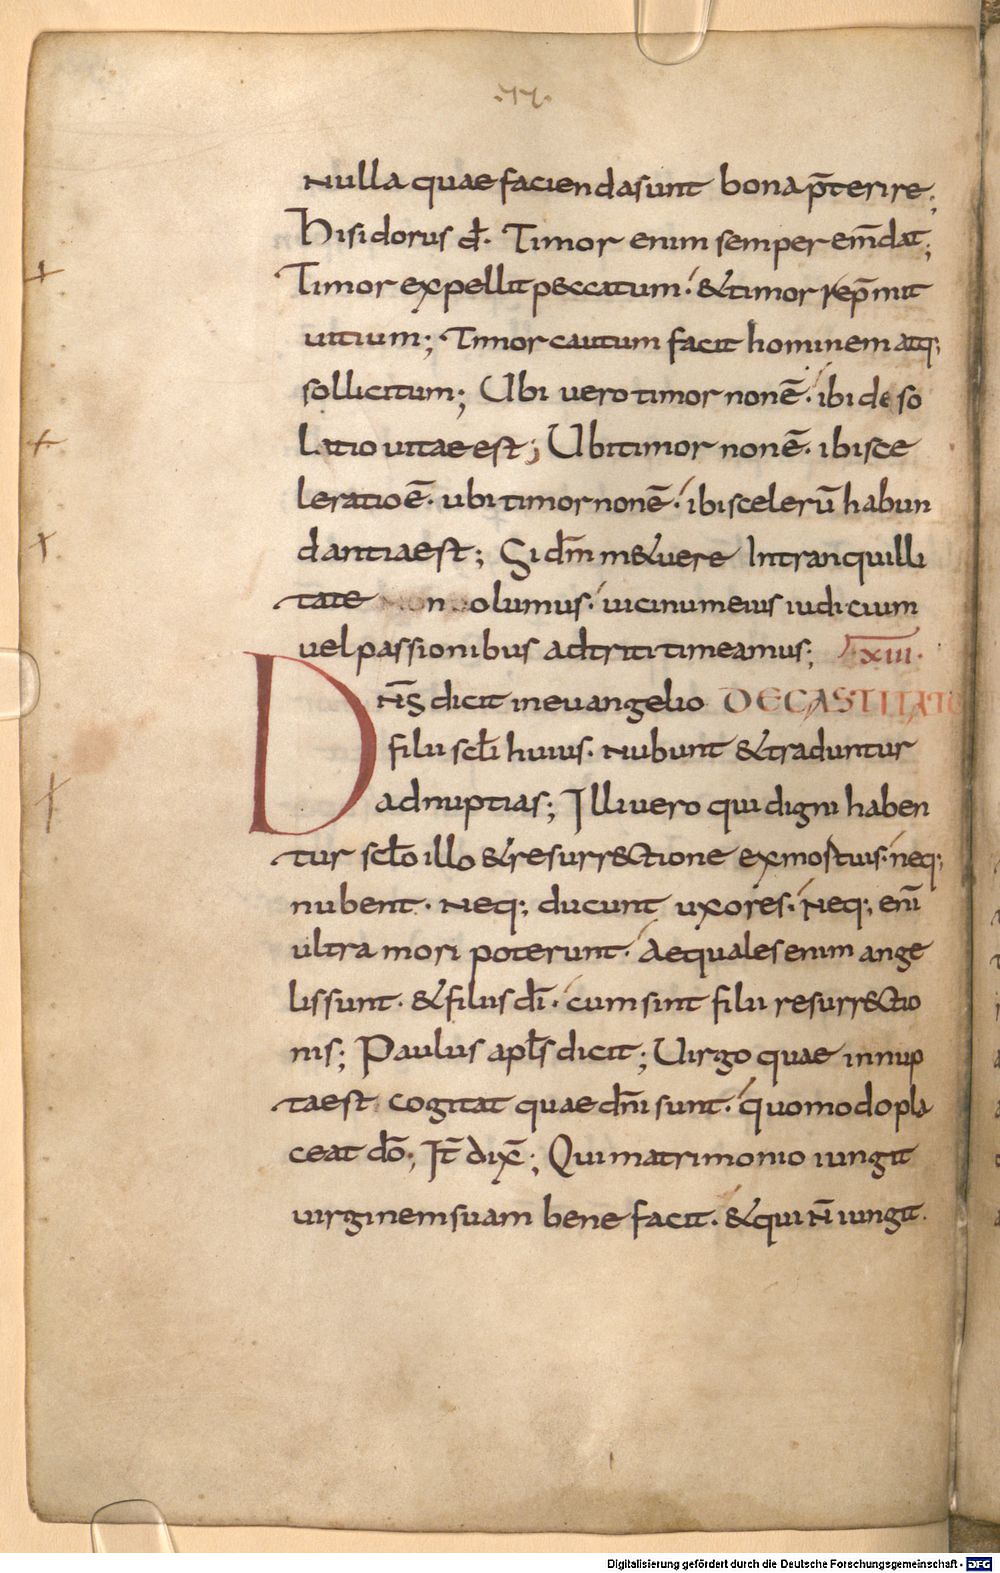 .77.
nulla quae faciendasunt bona p̄terire;
Hisidorus đ. Timor enim semper em̄dat;
Timor expellit p&ccatum. & timor rep̄mit
uitium; Timor cautum facit hominem atq;
sollicitum; Ubi uero timor non ē. ibi deso
latio uitae est; Ubi timor non ē. ibi sce
leratio ē. ubi timor non ē. ibi scelerū habun
dantia est; Si dn̄m m&uere In tranquilli
tate olumus. uicinum eius iudicium
uel passionibus adtriti timeamus; XIII.
DN̄S dicit in euangelio DE CASTITATE
filii scl̄i huius. nubunt & traduntur
ad nuptias; Illi uero qui digni haben
tur scl̄o illo & resurr&ctione ex mortuis. neq;
nubent. neq; ducunt uxores. Neq; eni̅
ultra mori poterunt. Aequales enim ange
lis sunt. & filius dī. cum sint filii resurr&ctio
nis; Paulus apl̄s dicit; Uirgo quae innup
ta est cogitat quae dn̄i sunt. quomodo pla
ceat dō; It̄ dix̄; Qui matrimonio iungit
uirginem suam bene facit. & qui n̄ iungit.
Digitalisierung gefördert durch die Deutsche Forschungsgemeinschaft - DFG